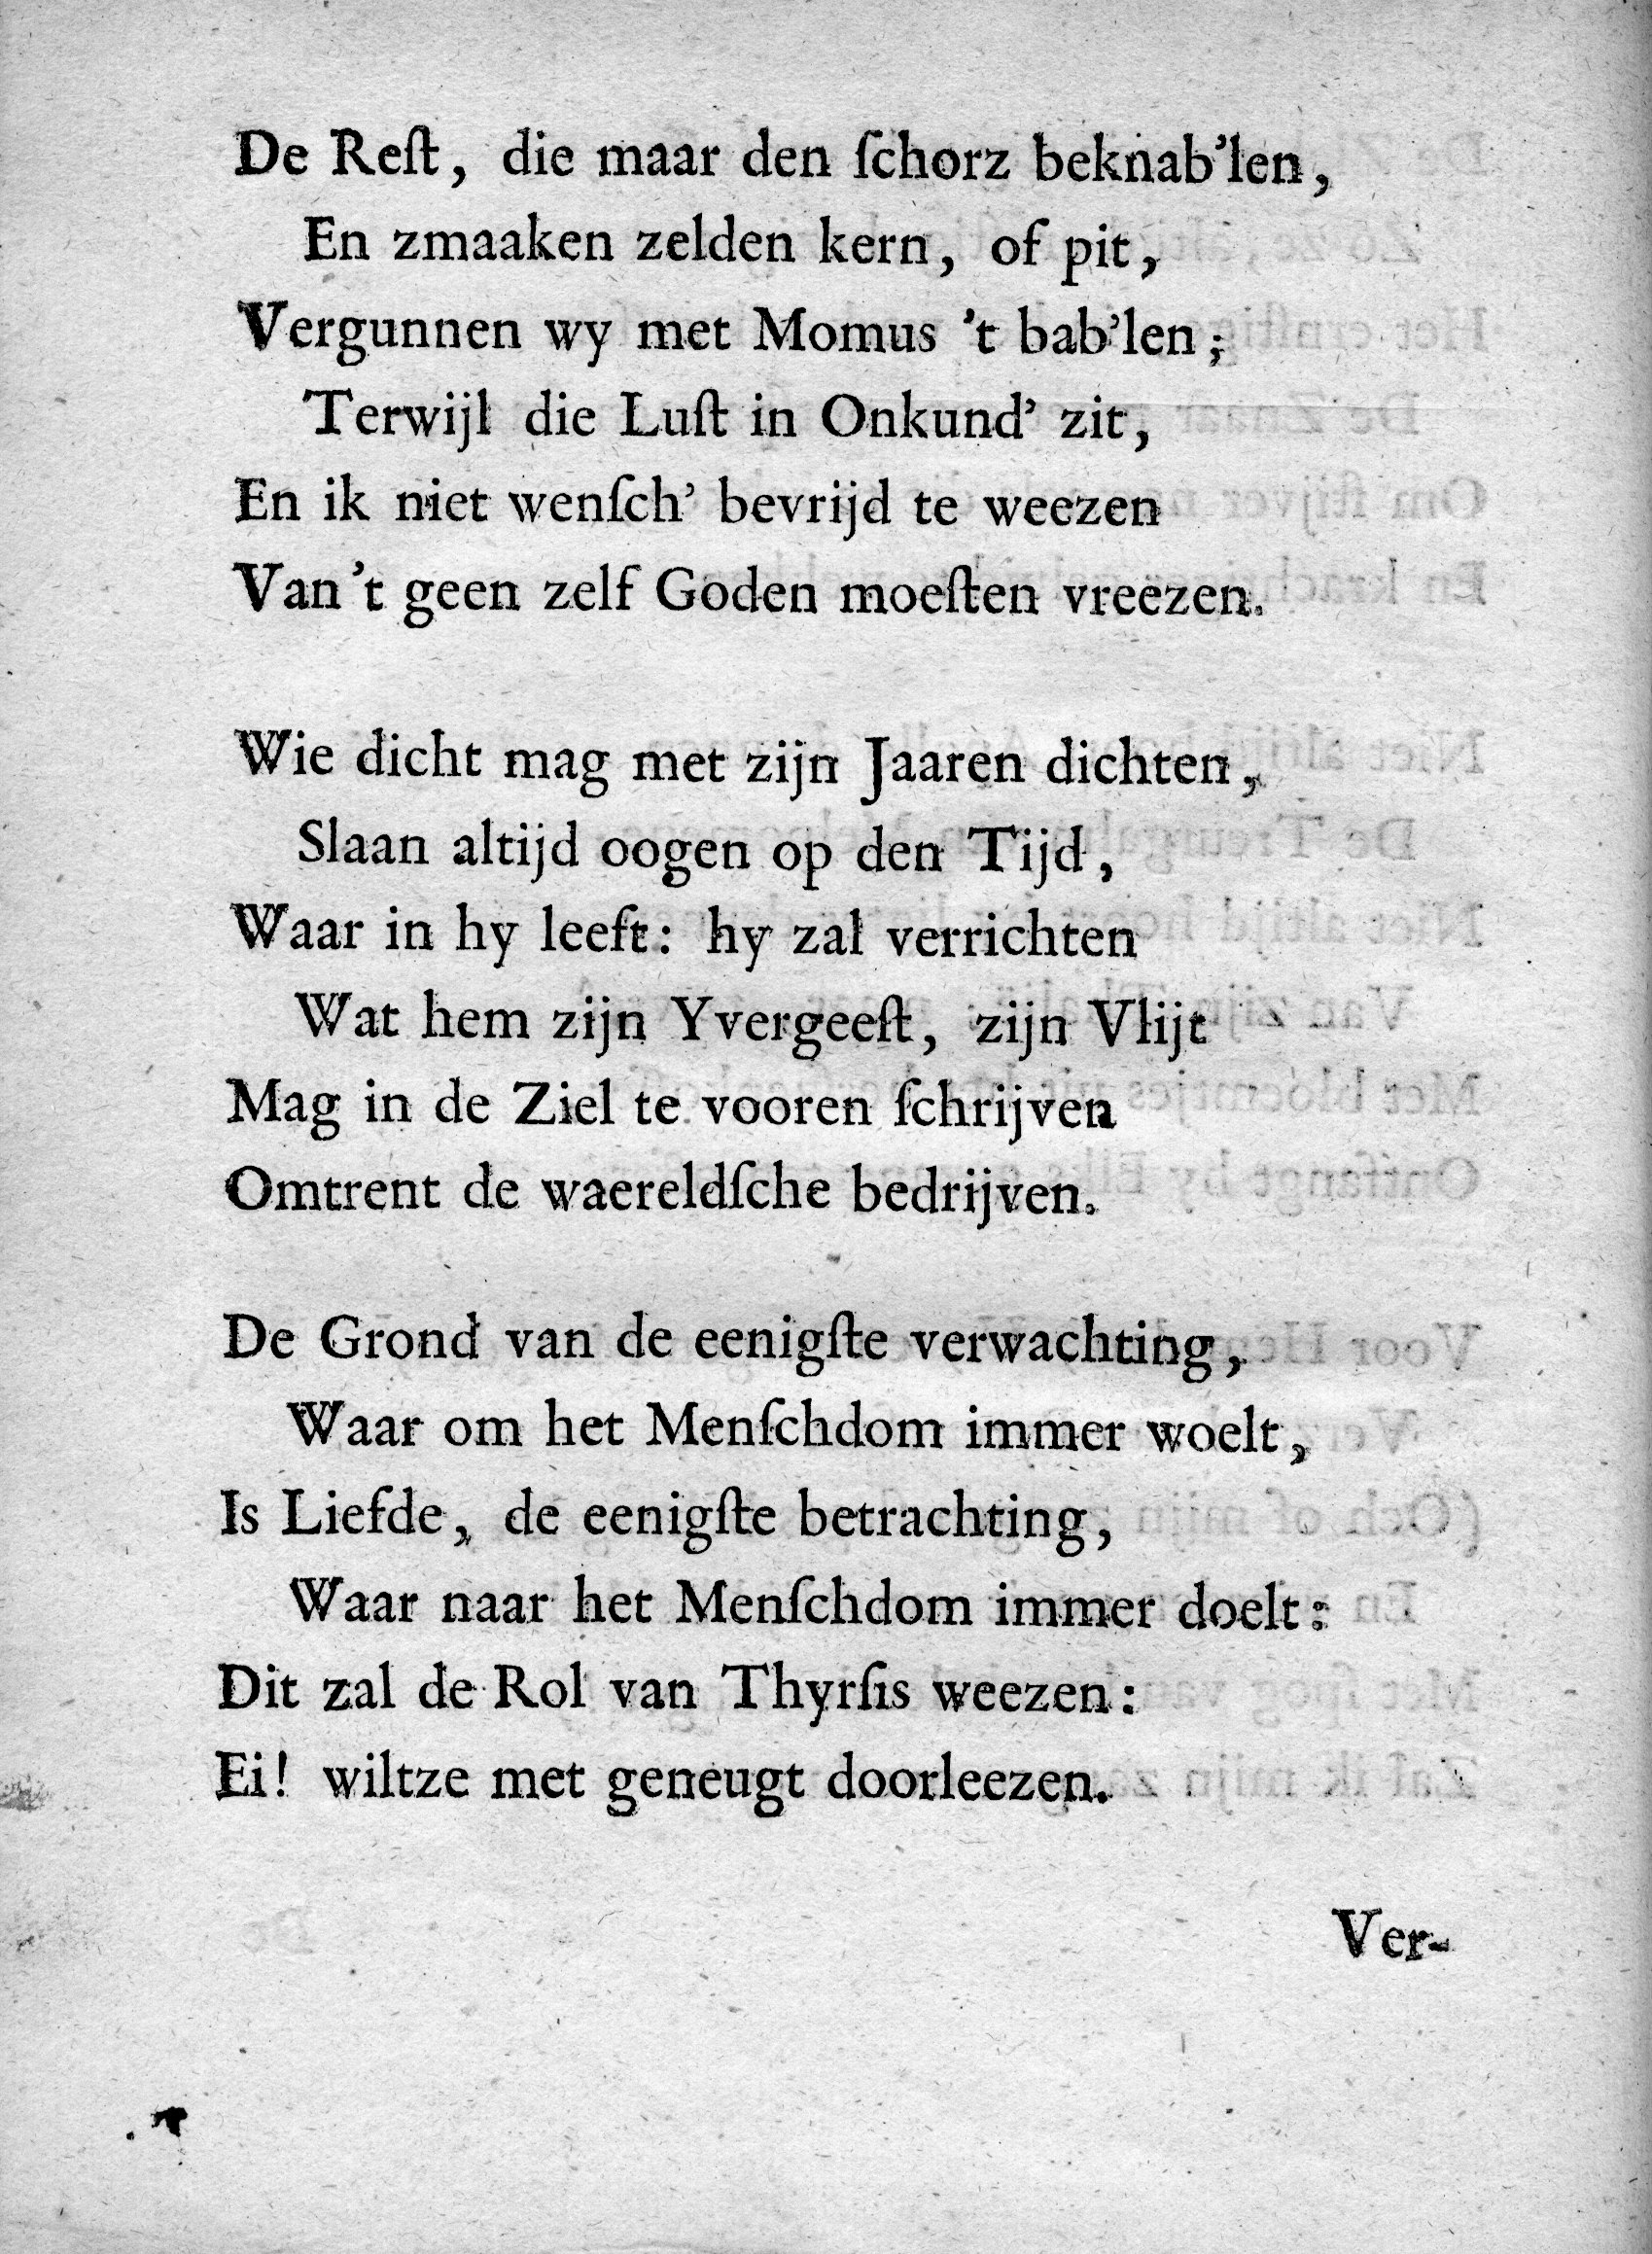 De Reſt, die maar den ſchorz beknab'len,
En zmaaken zelden kern, of pit,
Vergunnen wy met Momus 't bab'len;
Terwijl die Luſt in Onkund' zit,
En ik niet wenſch' bevrijd te weezen
Van 't geen zelf Goden moeſten vreezen.
Wie dicht mag met zijn Jaaren dichten,
Slaan altijd oogen op den Tijd,
Waar in hy leeft: hy zal verrichten
Wat hem zijn Yvergeeſt, zijn Vlijt
Mag in de Ziel te vooren ſchrijven
Omtrent de waereldſche bedrijven.
De Grond van de eenigſte verwachting,
Waar om het Menſchdom immer woelt,
Is Liefde, de eenigſte betrachting,
Waar naar het Menſchdom immer doelt:
Dit zal de Rol van Thyrſis weezen:
Ei! wiltze met geneugt doorleezen.
Ver-